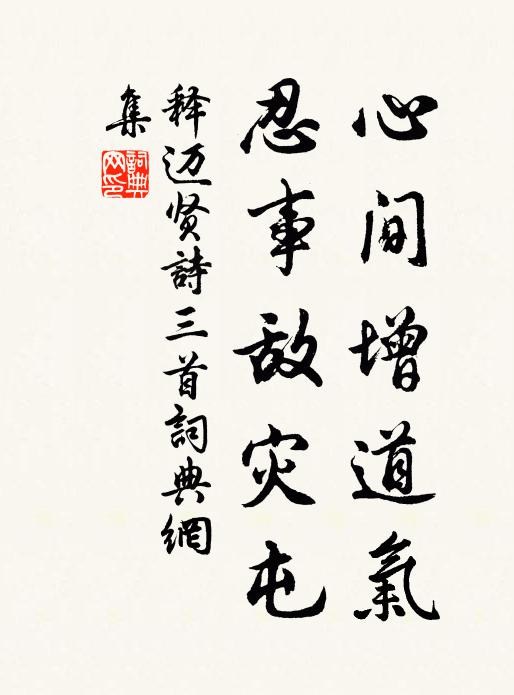 心间增道氣
忍事敌灾屯
释迈贤詩三首詞典網
集
詞典
网印